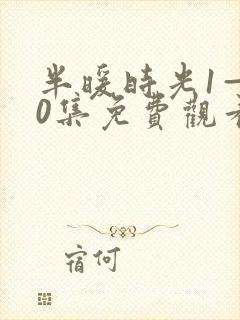 半暖時光1—
0集免費觀看
宿何